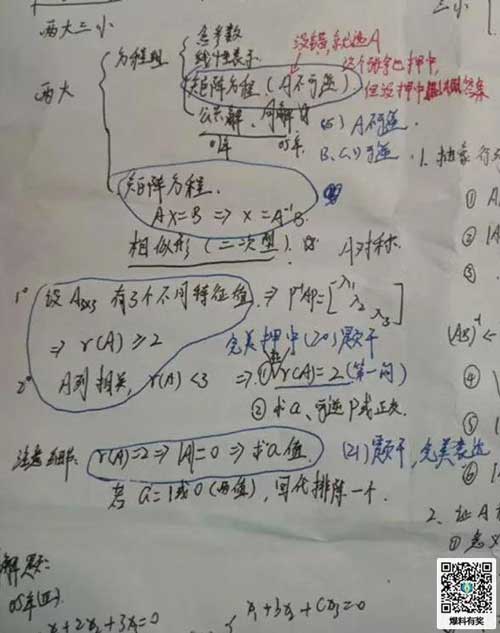 两大三小
两大
方程组
含参数
线性表示
矩阵方程(A不可逆)
公共解、同解
01年 05年
没错,就是A
这个例子也押中,
但没押中
答案
A不可逆.
B、C、D可逆.
矩阵方程.
AX=B ⇒ X=A⁻¹B.
相似形(二次型).
A对称.
1° 设A₃ₓ₃有3个不同特征值. ⇒ P⁻¹AP=[λ₁ λ₂ λ₃]
⇒ r(A)≥2
完美押中(20)题干
2° A列相关, r(A)<3 ⇒ ① r(A)=2(第一问)
② 求a、可逆P或正交.
注意细节: r(A)=2 ⇒ |A|=0 ⇒ 求a值.
(21)题干,完美表达
若a=1或0(两值),回代排除一个.
解题:
05年四
x₁+2x₂+3x₃=0
三小
1. 抽象行列
①
②
③
④
⑤
⑥
2. 证A
①定义
爆料有奖